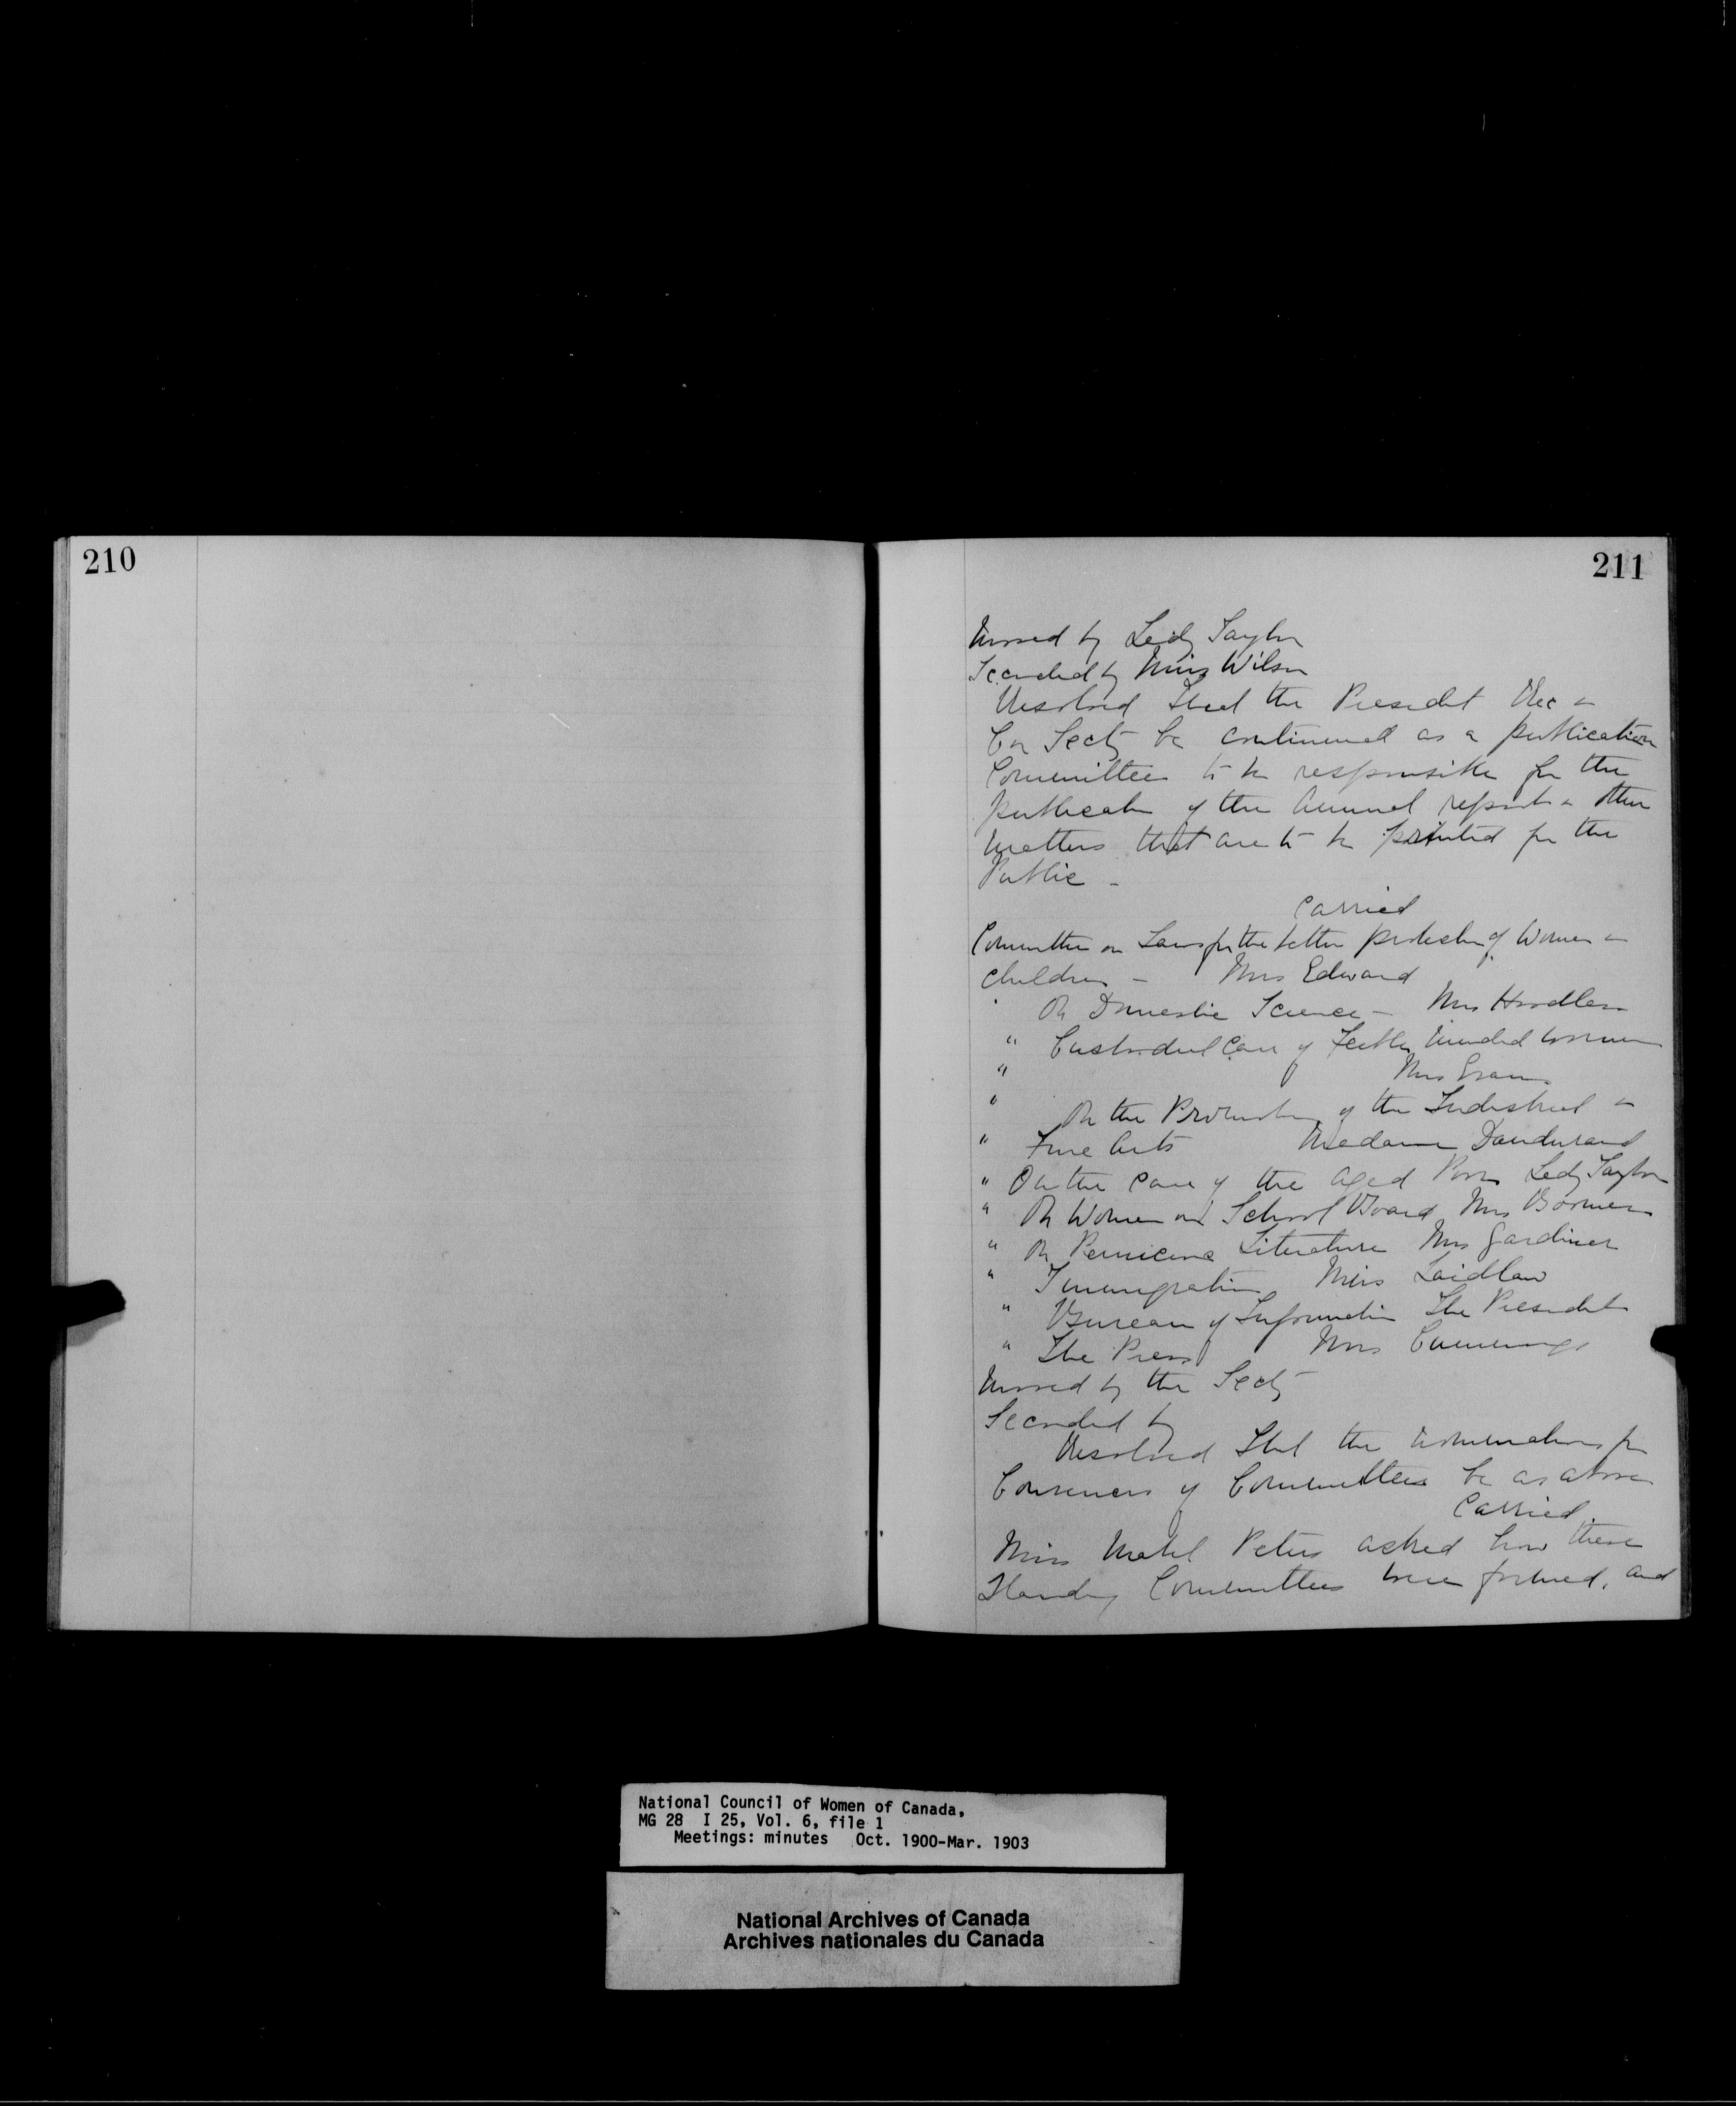 210
211
Moved by Lady Taylor
Seconded by Miss Wilson
Resolved that the President Rec &
Cor Secty be continued as a publication
Committee to be responsible for the
publication of the Annual report & other
matters that are to be printed for the
Public -
Carried
Committee on Laws for the better protection of Women &
Children - Mrs Edward
" On Domestic Science - Mrs Hoodless
" Custodial Care of Feeble Minded women
" Mrs Evans
" On the Promotion of the Industrial &
" Fine Arts Madame Dandurand
" On the Care of the Aged Poor Lady Taylor
" On Women on School Board Mrs Boomer
" On Pernicious Literature Mrs Gardiner
" Immigration Miss Laidlaw
" Bureau of Information The President
" The Press Mrs Cummings
Moved by the Secty
Seconded by
Resolved that the nominations for
Conveners of Committees be as above
Carried
Miss Mabel Peters asked how these
Standing Committees were formed, and
National Council of Women of Canada,
MG 28 I 25, Vol. 6, file 1
Meetings: minutes Oct. 1900-Mar. 1903
National Archives of Canada
Archives nationales du Canada